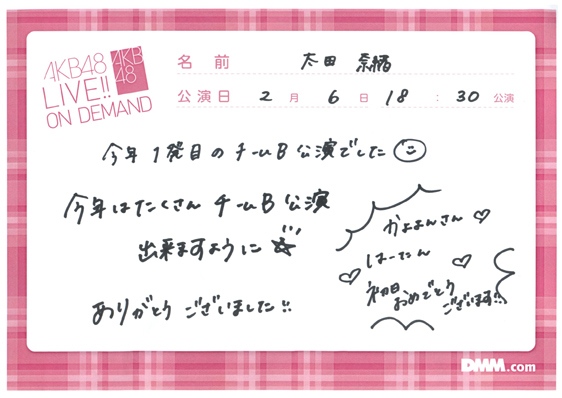 AKB48
LIVE!!
ON DEMAND
AKB
48
名前 太田 奈緒
公演日 2月 6日 18:30 公演
今年1発目のチームB公演でした
今年はたくさんチームB公演
出来ますように☆
ありがとうございました!!
かよよんさん♡
はーたん♡
♡初日
おめでとう
ございます!!
DMM.com